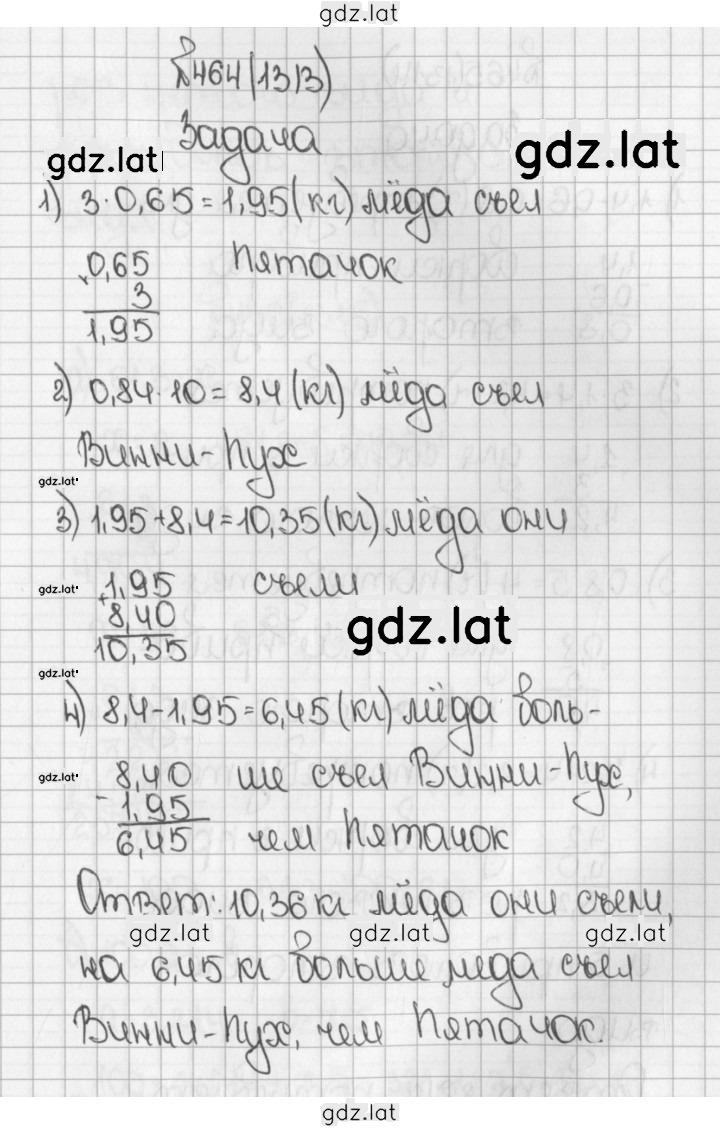 gdz.lat
№464(1313)
Задача
gdz.lat
gdz.lat
1) 3·0,65=1,95(кг) мёда съел
0,65 Пятачок
× 3
1,95
2) 0,84·10=8,4(кг) мёда съел
Винни-Пух
gdz.lat
3) 1,95+8,4=10,35(кг) мёда они
gdz.lat
+1,95 съели
8,40
gdz.lat
10,35
gdz.lat
4) 8,4-1,95=6,45(кг) мёда боль-
gdz.lat
8,40 ше съел Винни-Пух,
-1,95
6,45 чем Пятачок
Ответ: 10,36 кг мёда они съели,
gdz.lat gdz.lat gdz.lat
на 6,45 кг больше меда съел
Винни-Пух, чем Пятачок.
gdz.lat